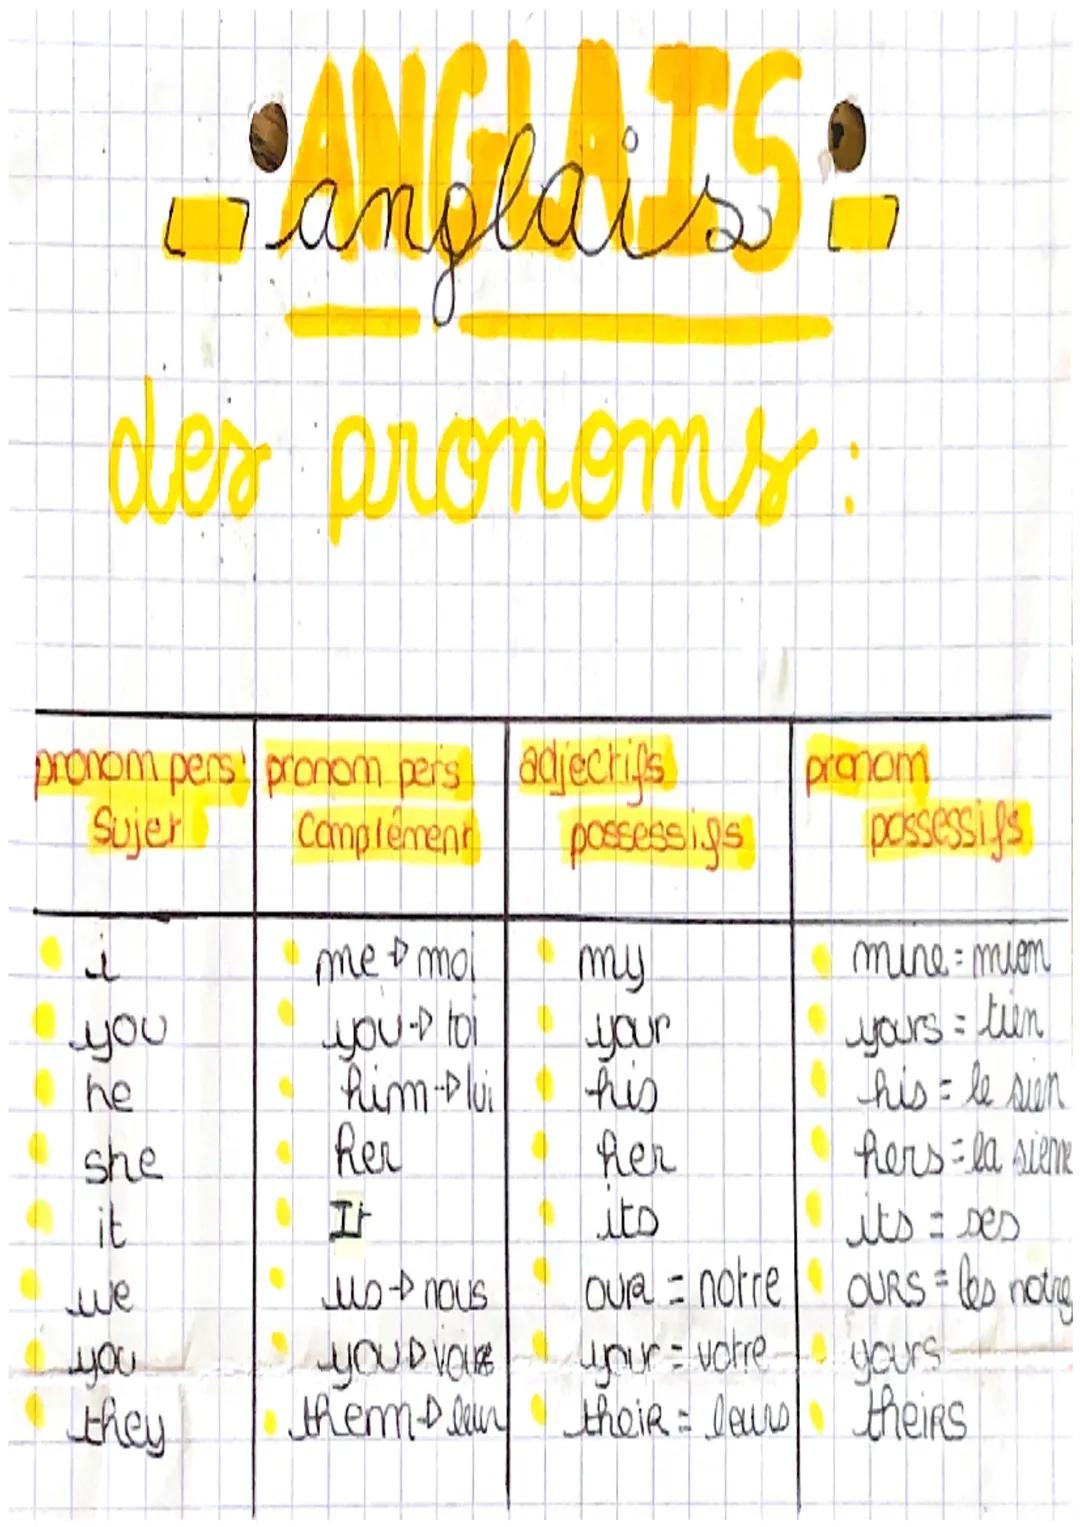 ANGLAIS
anglais
des pronoms :
pronom pers' Sujet | pronom pers Complément | adjectifs possessifs | pronom possessifs
i | me → moi | my | mine = mien
you | you → toi | your | yours = tien
he | him → lui | his | his = le sien
she | her | her | hers = la sienne
it | It | its | its = ses
we | us → nous | our = notre | OURS = les notre
you | you → vous | your = votre | yours
they | them → leur | their = leurs | theirs